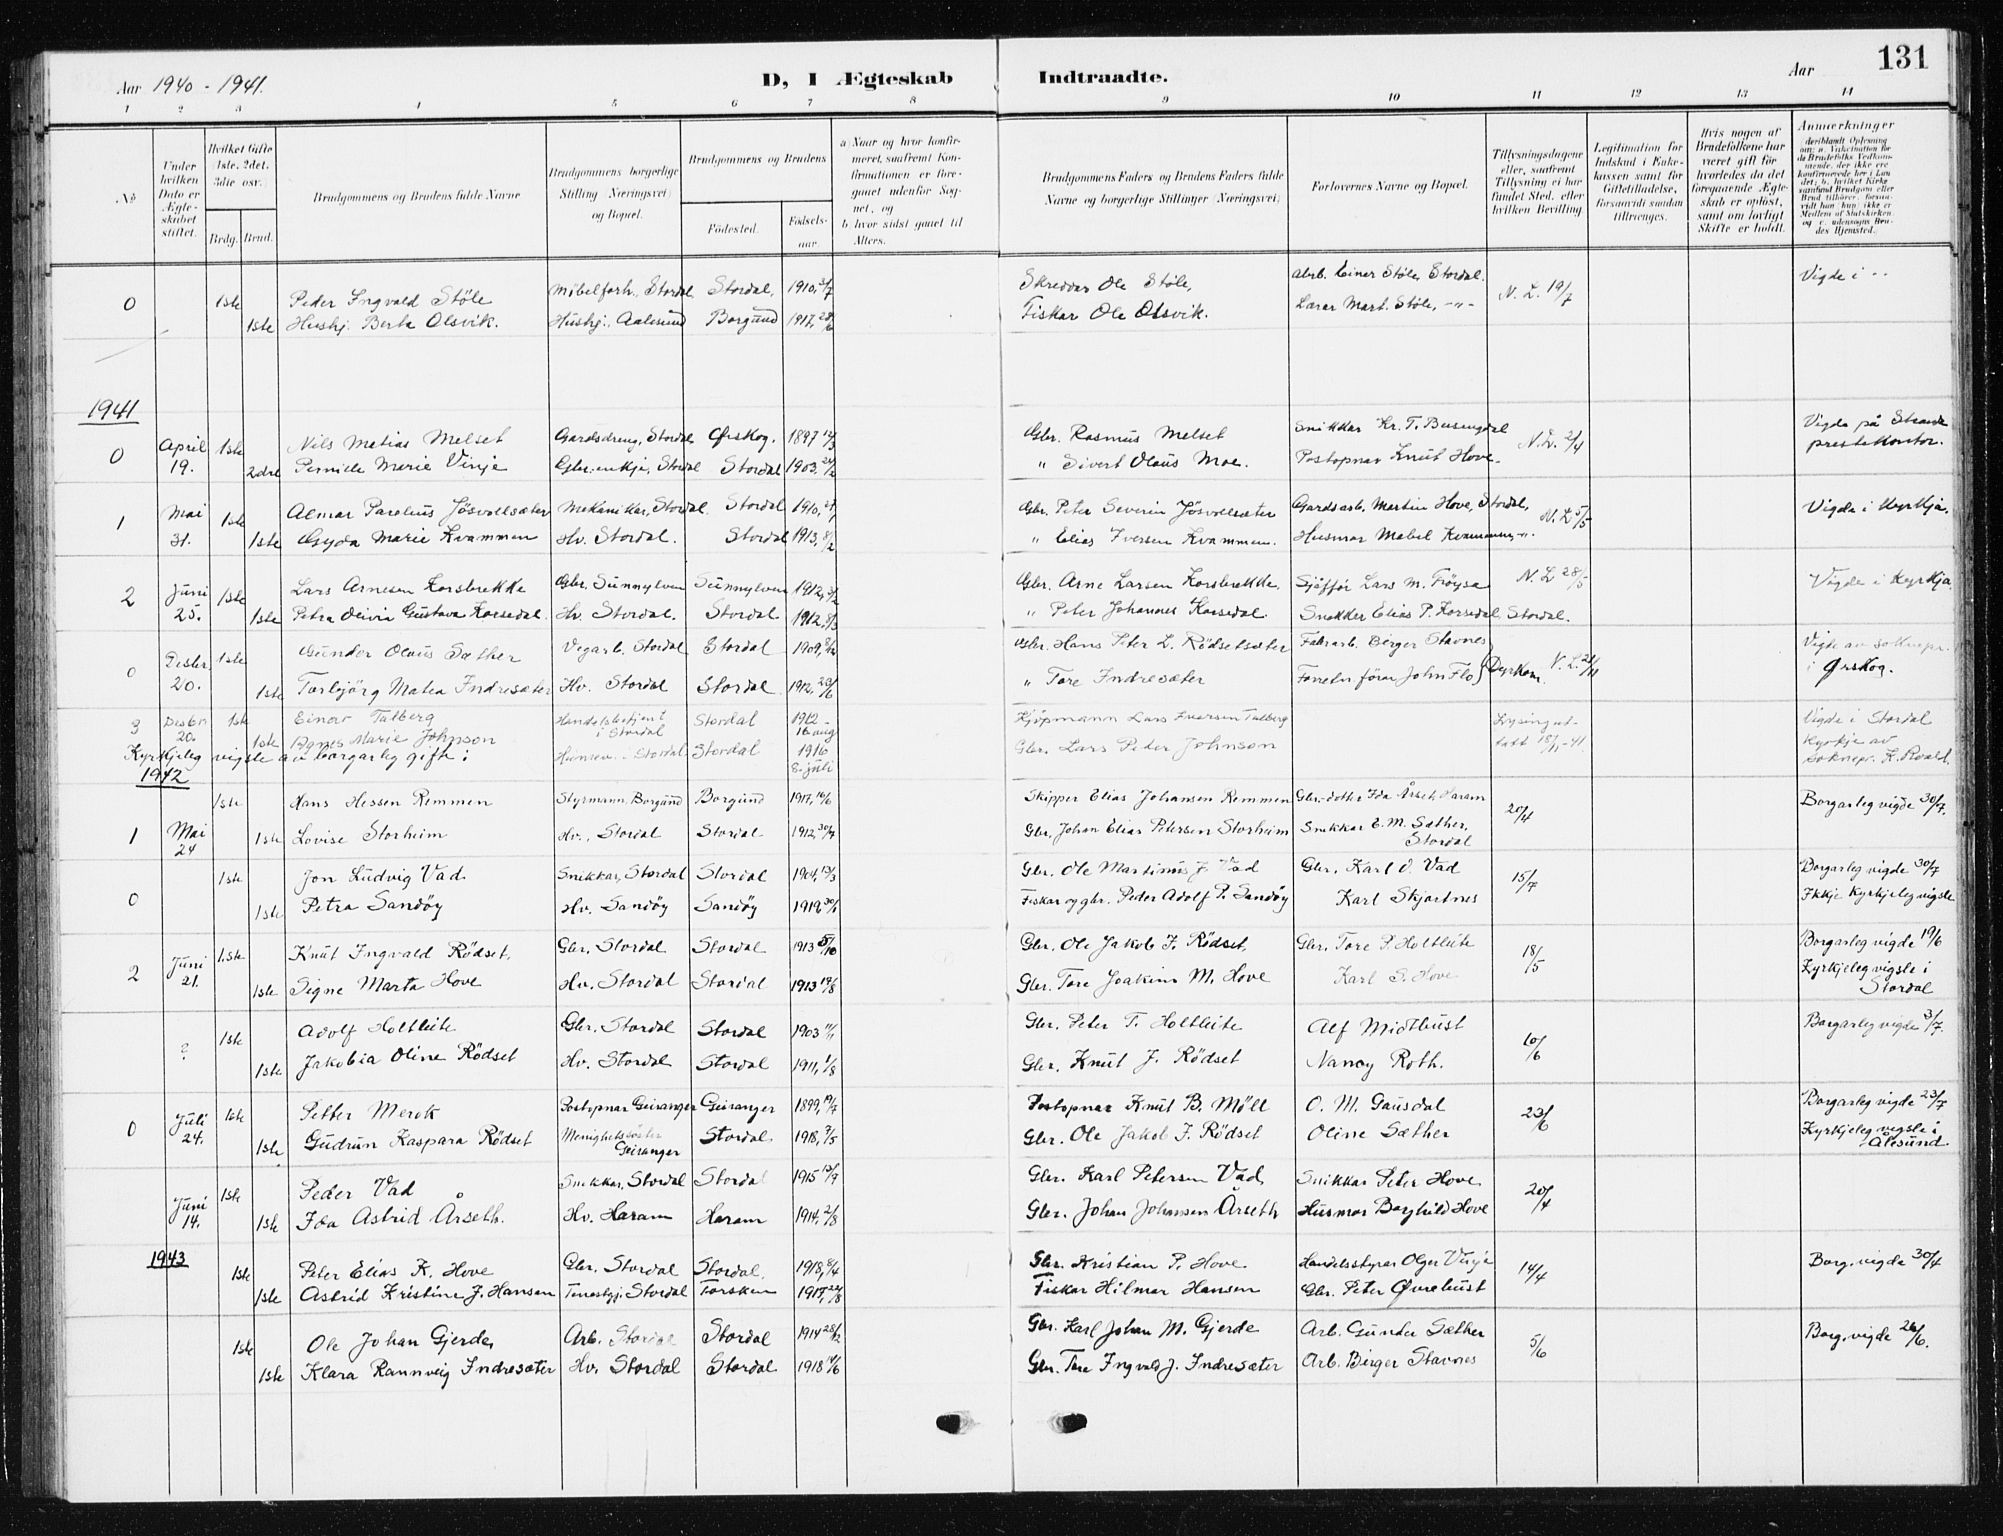 Aar 1940 - 1941. D, I Ægteskab Indtraadte. Aar 131
1 2 3 4 5 6 7 8 9 10 11 12 13 14
No
Under hvilken Dato er Ægteskabet stiftet.
Hvilket Gifte 1ste, 2det, 3die osv.
Brdg. Brud.
Brudgommens og Brudens fulde Navne
Brudgommens borgerlige Stilling (Næringsvei) og Bopæl.
Brudgommens og Brudens
Fødested. Fødselsaar.
a) Naar og hvor konfirmeret, saafremt Konfirmationen er foregaaet udenfor Sognet, og
b) hvor sidst gaaet til Alters.
Brudgommens Faders og Brudens Faders fulde Navne og borgerlige Stillinger (Næringsvei)
Forlovernes Navne og Bopæl.
Tillysningsdagene eller, saafremt Tillysning ei har fundet Sted, efter hvilken Bevilling.
Legitimation for Indskud i Enkekassen samt for Giftetilladelse, forsaavidt saadan tiltrænges.
Hvis nogen af Brudefolkene har været gift før hvorledes da det foregaaende Ægteskab er opløst, samt om lovligt Skifte er holdt.
Anmærkninger
0 1ste Peder Ingvald Støle Møbelforh., Stordal Stordal, 1910, 3/7 Skreddar Ole Støle, arb. Einar Støle, Stordal. N. L. 19/7 Vigde i --
1ste Hushj. Berta Olsvik. Hushj., Aalesund Borgund 1917, 28/6 Fiskar Ole Olsvik. Lærar Mart. Støle, -"-
1941
0 April 19. 1ste Nils Matias Melset Gardsdreng, Stordal Ørskog. 1897 12/3 Gbr. Rasmus Melset Snikkar Kr. T. Busengdal N. L. 2/4 Vigde på Stranda prestekontor.
2dre Pernille Marie Vinje Gbr.enkje, Stordal Stordal 1903, 24/2 " Sivert Olaus Moe. Postopnar Knut Hove.
1 Mai 31. 1ste Almar Parelius Jøsvollsæter Mekanikar, Stordal. Stordal 1910, Gbr. Peter Severin Jøsvollsæter Gardsarb. Martin Hove, Stordal, N. L. 5/5 Vigde i Kyrkja.
1ste Gyda Marie Kvammen Hv. Stordal. Stordal 1913, 8/2 " Elias Iversen Kvammen. Husmor Mabel Kvammen, -"-
2 Juni 25. 1ste Lars Arnesen Korsbrekke Gbr. Sunnylven Sunnylven 1912, Gbr. Arne Larsen Korsbrekke. Sjåfför Lars M. Frøysa N. L. 28/5 Vigde i Kyrkja
1ste Petra Olivia Gustava Korsedal. Hv. Stordal. Stordal 1912. 8/3 " Peter Johannes Korsedal. Snekker Elias P. Korsedal, Stordal.
0 Desbr 20. 1ste Gunder Olaus Sæther Vegarb. Stordal Stordal 1909, 8/12 Gbr. Hans Peter L. Rödsetsæter Fabr.arb. Birger Stavnes Vigde av soknepr. i Ørskog.
1ste Torbjörg Matea Indresæter Hv. Stordal Stordal 1912, 23/6 " Tore Indresæter John Flo N. L. 21/11
3 Desbr 20. 1ste Einar Talberg Handelsbetjent i Stordal Stordal 1912 - 16 aug Kjöpmann Lars Iversen Talberg Lysing uttatt 18/11-41. Vigde i Stordal Kyrkje av soknepr. K. Roald.
1ste Agnes Marie Johnson Stordal Stordal 1916 8. juli Gbr. Lars Peter Johnson
Kyrkjeleg vigsle av borgarleg gifte:
1942
1 Mai 24 1ste Hans Hessen Remmen Styrmann, Borgund Borgund 1917, 16/6 Skipper Elias Johansen Remmen Gbr.-dotter Ida Årset, Haram 20/4 Borgarleg vigde 30/7.
1ste Lovise Storheim Hv., Stordal Stordal 1912 30/7 Gbr. Johan Elias Petersen Storheim Snikkar E. M. Sæther, Stordal
0 1ste Jon Ludvig Vad Snikkar, Stordal Stordal 1904, 13/3 Gbr. Ole Martinus J. Vad Gbr. Karl O. Vad 15/7 Borgarleg vigde 30/7
1ste Petra Sandöy Hv. Sandöy Sandöy 1919 30/1 Fiskar og gbr. Peder Adolf P. Sandöy Karl Skjortnes Ikkje kyrkjeleg vigsle
2 Juni 21. 1ste Knut Ingvald Rödset, Gbr. Stordal Stordal 1913 5/10 Gbr. Ole Jakob F. Rödset, Gbr. Tore P. Holtleite 18/5 Borgarleg vigde 19/6
1ste Signe Marta Hove Hv. Stordal Stordal 1913 19/8 Gbr. Tore Joakim M. Hove Karl S. Hove Kyrkjeleg vigsle i Stordal
? 1ste Adolf Holtleite Gbr. Stordal Stordal 1903 11/1 Gbr. Peter T. Holtleite Alf Midtbust 10/6 Borgarleg vigde 3/7.
1ste Jakobia Oline Rödset Hv. Stordal Stordal 1911, 1/8 Gbr. Knut J. Rödset Nancy Roth.
0 Juli 24. 1ste Petter Merok Postopnar Geiranger Geiranger 1899, 19/7 Postopnar Knut B. Möll O. M. Gausdal 23/6 Borgarleg vigde 23/7
1ste Gudrun Kaspara Rödset Menighetssöster Geiranger Stordal 1918, 9/5 Gbr. Ole Jakob F. Rödset Oline Sæther Kyrkjeleg vigsle i Ålesund.
Juni 14. 1ste Peder Vad Snikkar, Stordal Stordal 1915 13/9 Gbr. Karl Petersen Vad, Snikkar Peter Hove. 20/4
1ste Ida Astrid Årseth. Hv. Haram Haram 1914, 2/8 Gbr. Johan Johansen Årseth Husmor Borghild Hove
1943
1ste Peter Elias K. Hove Gbr. Stordal Stordal. 1918, 8/4 Gbr. Kristian P. Hove. Handelsstyrar Olger Vinje 14/4 Borg. vigde 30/4
1ste Astrid Kristine J. Hansen Stordal Torsken 1917, 22/8 Fiskar Hilmar Hansen Gbr. Peter Øvrebust
1ste Ole Johan Gjerde, Arb. Stordal Stordal 1914 28/12 Gbr. Karl Johan M. Gjerde Arb. Gunder Sæther 5/6 Borg. vigde 26/6.
1ste Klara Rannveig Indresæter Hv. Stordal Stordal 1918 14/6 Gbr. Tore Ingvald J. Indresæter Arb. Birger Stavnes